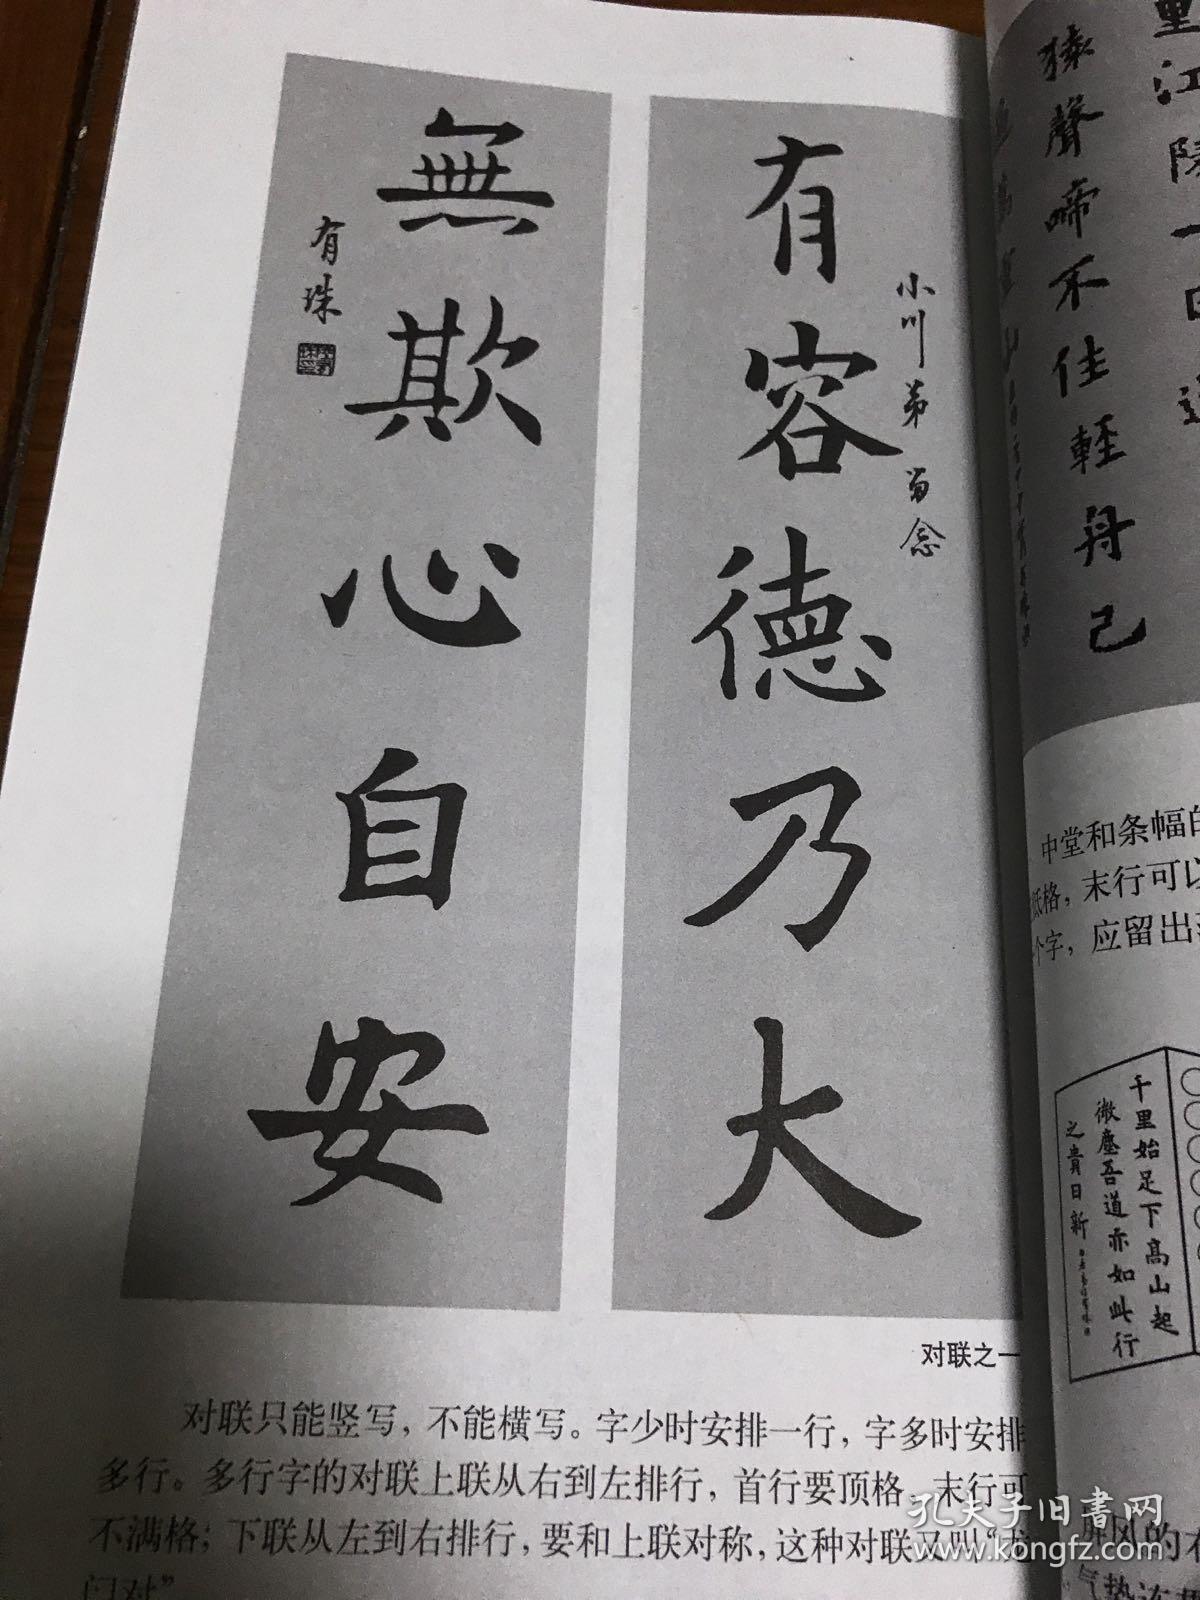 有容德乃大
小川弟 留念
無欺心自安
有珠
对联之一
对联只能竖写，不能横写。字少时安排一行，字多时安排
多行。多行字的对联上联从右到左排行，首行要顶格，末行可
不满格；下联从左到右排行，要和上联对称，这种对联又叫“龙
门对”
里江陵一日
猿聲啼不住輕舟已
中堂和条幅的
格，末行可以
个字，应留出
千里始足下高山起
微塵吾道亦如此行
之貴日新
屏风的
孔夫子旧書网
www.kongfz.com